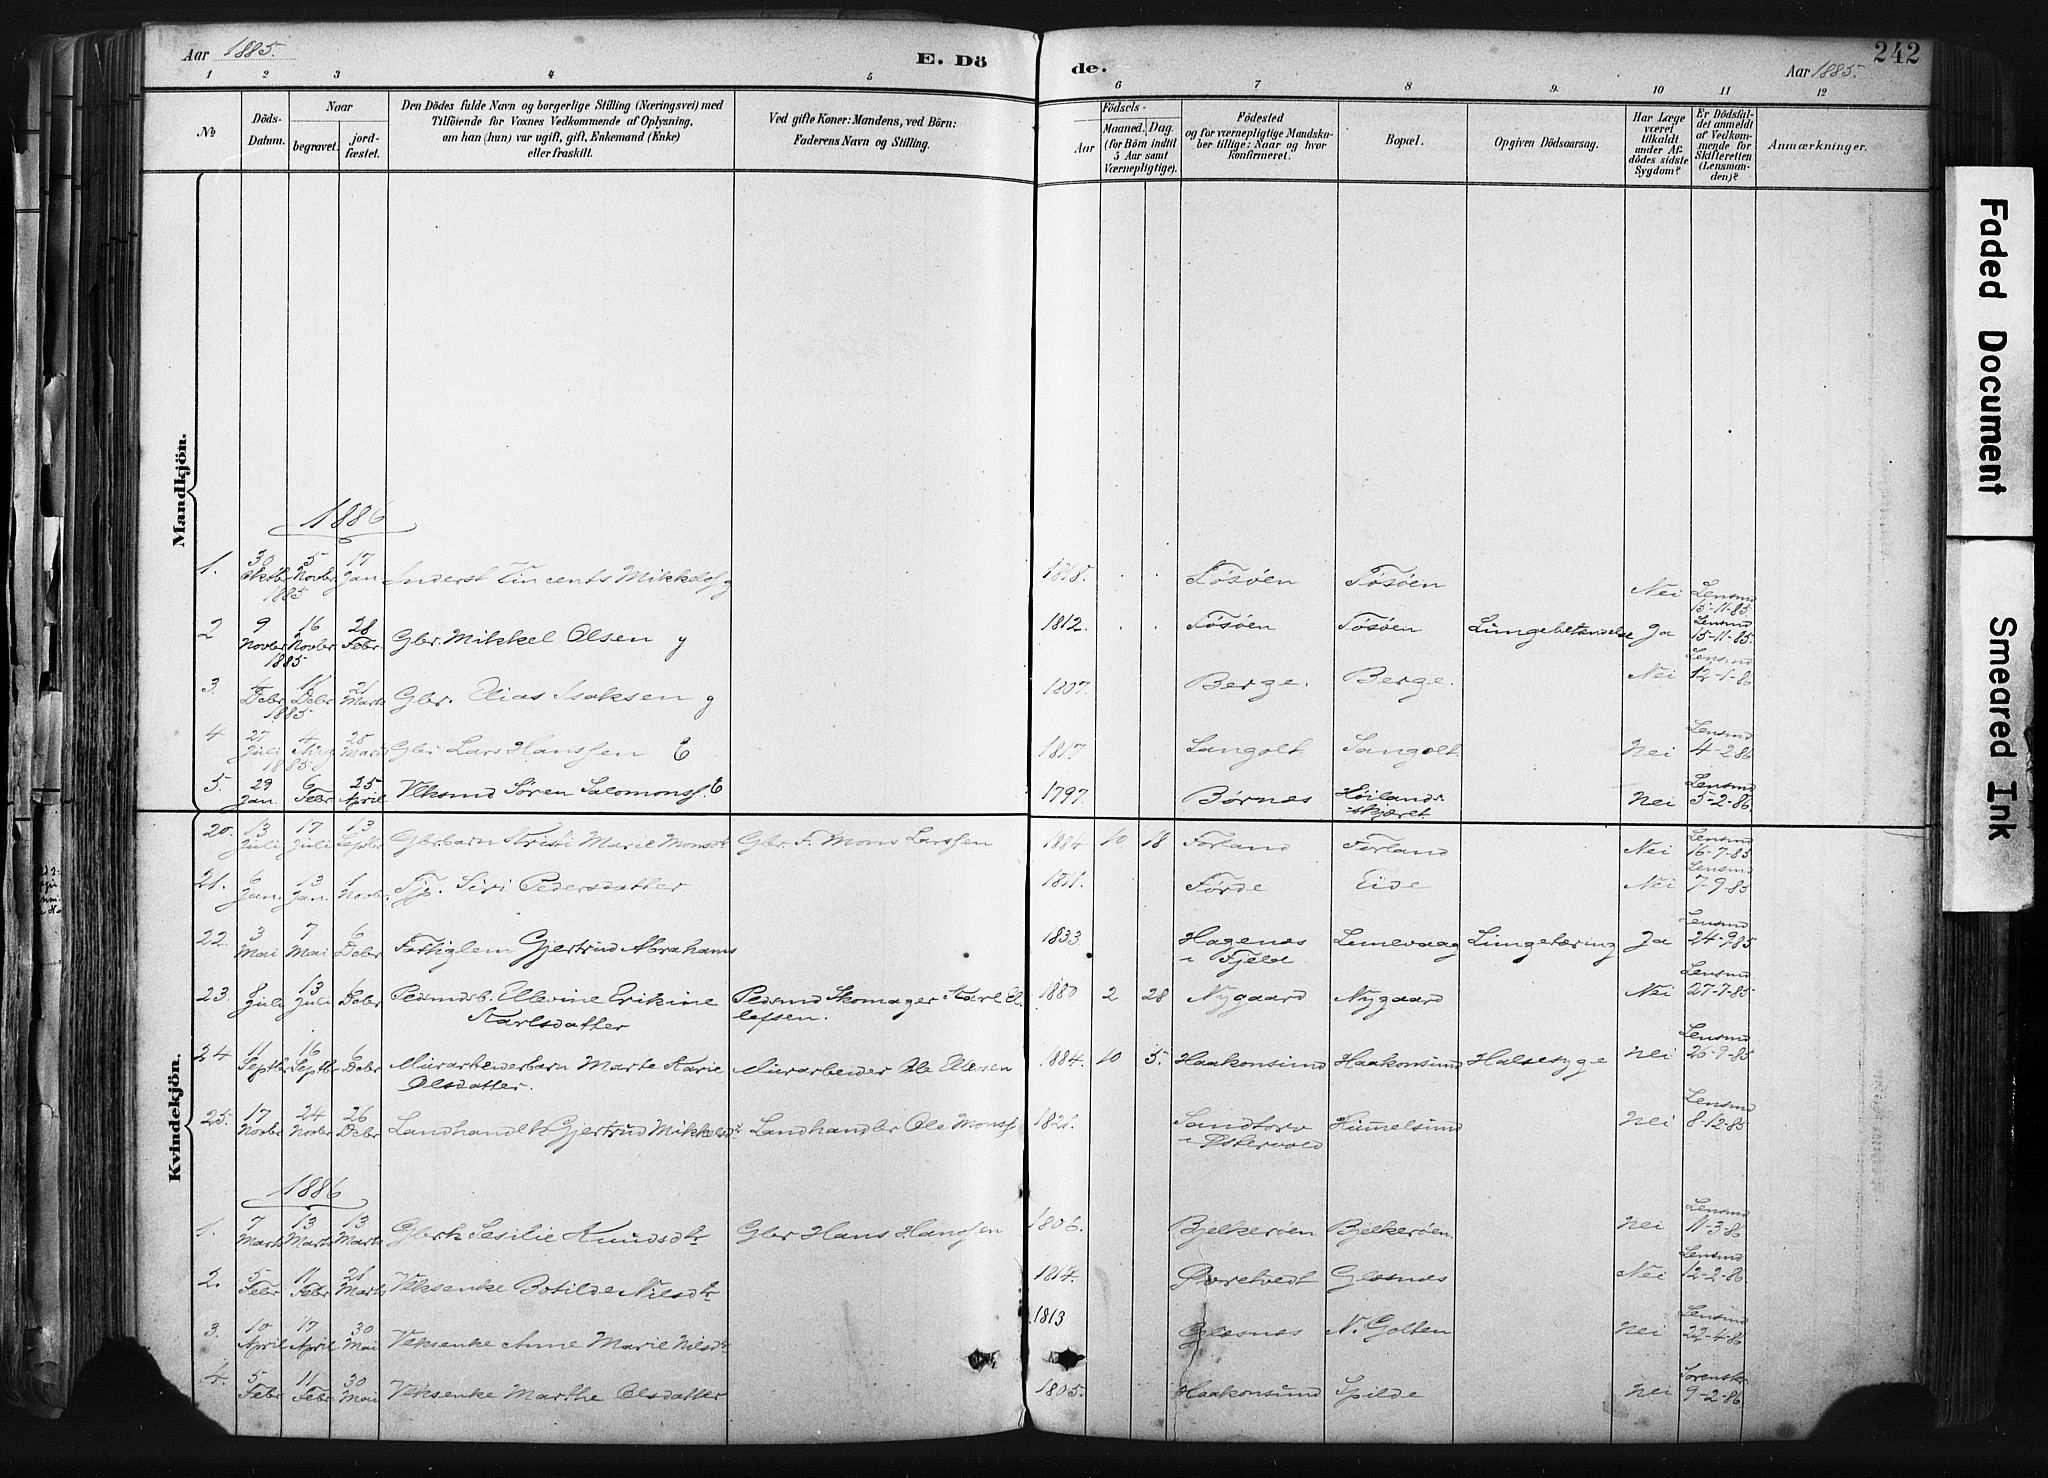 Aar 1885.
E. Dö
de.
242
Aar 1885.
1 2 3 4 5 6 7 8 9. 10 11 12
No
Döds-
Datum.
Naar
begravet.
jord-
fæstet.
Den Dödes fulde Navn og borgerlige Stilling (Næringsvei) med
Tilföiende for Voxnes Vedkommende af Oplysning,
om han (hun) var ugift, gift, Enkemand (Enke)
eller fraskilt.
Ved gifte Koner: Mandens, ved Börn:
Faderens Navn og Stilling.
Födsels-
Aar
Maaned. Dag.
(for Börn indtil
5 Aar samt
Værnepligtige).
Födested
og for værnepligtige Mandska-
ber tillige: Naar og hvor
Konfirmeret.
Bopæl.
Opgiven Dödsaarsag.
Har Læge
været
tilkaldt
under Af-
dödes sidste
Sygdom?
Er Dödsfal-
det anmeldt
af Vedkom-
mende for
Skifteretten
(Lensman-
den)?
Anmærkninger.
Mandkjön.
1886
1. 30 Oktbr 5 Novbr 1885 17 Jan Inderst Vincents Mikkels. g 1818. Tøsøen Tøsøen Nei Lensmd 15-11-85
2 9 Novbr 16 Novbr 1885 28 Febr. Gbr. Mikkel Olsen g 1812. Tøsøen Tøsøen Lungebetændelse Ja Lensmd 15-11-85
3. 4 Debr 11 Debr 1885 21 Marts Gbr. Elias Isaksen g 1807. Berge. Berge. Nei Lensmd 12-1-86
4 27 Juli 4 Aug 1885 28 Marts Gbr Lars Hanssen E 1817 Sangolt Sangolt. Nei Lensmd 4-2-86
5. 29 Jan. 6 Febr 25 April Veksmd Søren Salomonss. E 1797. Børnes Høilands-
skjæret Nei Lensmd 5-2-86
Kvindekjön.
20. 13 Juli 17 Juli 13 Septbr Gbr.barn Kristi Marie Monsdt Gbr. F. Mons Larssen 1884 10 18 Forland Forland Nei Lensmd 16-7-85
21. 6 Jan. 13 Jan. 1 Novbr. Tjp. Siri Pedersdatter 1811. Førde Eide Nei Lensmd 7-9-85
22. 3 Mai 7 Mai 6 Debr Fattiglem Gjertrud Abrahams 1833. Hagenes
i Fjeld Lenevaag Lungetæring Ja Lensmd 24-9-85
23. 8 Juli 13 Juli 6 Debr Pedsmdsb. Ellevine Erikine
Karlsdatter Pedsmd Skomager Karl El-
lefsen. 1880 2 28 Nygaard Nygaard Nei Lensmd 27-7-85
24. 11 Septbr 16 Septbr 6 Debr Murarbeiderbarn Marte Karie
Olsdatter. Murarbeider Ole Ellefsen 1884. 10 5. Haakonsund Haakonsund Halsesyge Nei Lensmd 26-9-85
25. 17 Novbr 24 Novbr 26 Debr Landhandl.k Gjertrud Mikkelsdt Landhandler Ole Monss. 1821. Sandtorv
i Østervold Hummelsund Nei Lensmd 8-12-85
1886
1. 7 Marts 13 Marts 13 Marts Gbrk Sesilie Knudsdtr Gbr Hans Hanssen 1806. Bjelkerøen Bjelkerøen. Nei Lensmd 11-3-86
2. 5 Febr 11 Febr 21 Marts Veksenke Botilde Nilsdtr 1817. Øvretvedt Glesnes Nei Lensmd 12-2-86
3. 10 April 17 April 30 Mai Veksenke Anne Marie Nilsdtr 1813 Glesnes N. Golten Nei Lensmd 22-4-86
4. 5 Febr 11 Febr 30 Mai Veksenke Marthe Olsdatter 1805. Haakonsund Spilde Nei Sorenskr 9-2-86
Faded Document
Smeared Ink